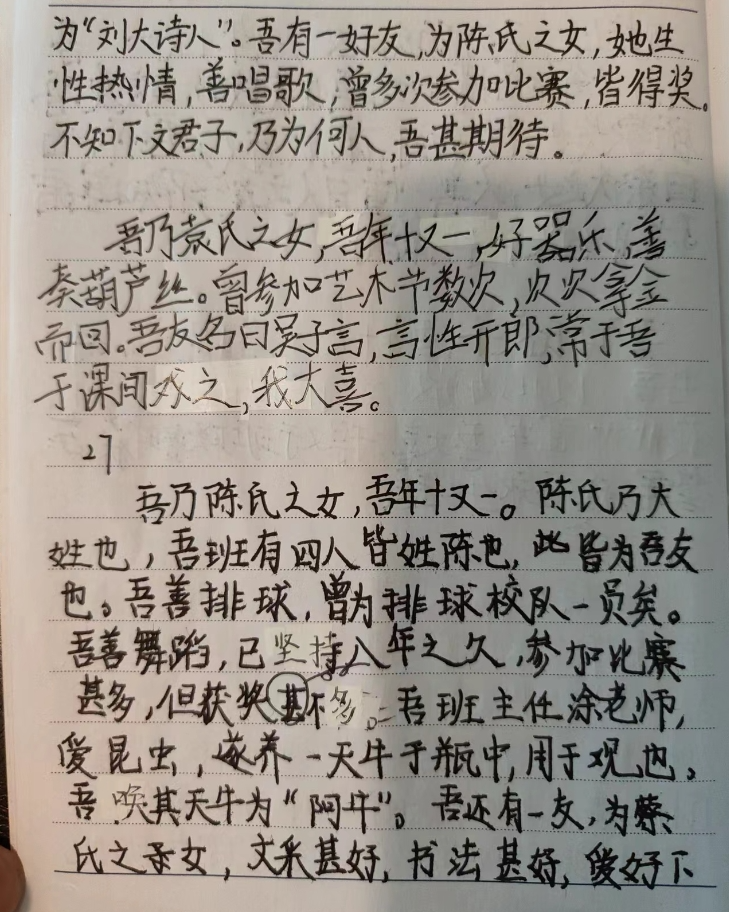 为“刘大诗人”。吾有一好友，为陈氏之女，她生
性热情，善唱歌，曾多次参加比赛，皆得奖。
不知下文君子，乃为何人，吾甚期待。
吾乃袁氏之女，吾年十又一，好器乐，善
奏葫芦丝。曾参加艺术节数次，次次拿金
而回。吾友名曰吴子言，言性开郎，常于吾
于课间戏之，我大喜。
27
吾乃陈氏之女，吾年十又一。陈氏乃大
姓也，吾班有四人皆姓陈也，此皆为吾友
也。吾善排球，曾为排球校队一员矣。
吾善舞蹈，已坚持八年之久，参加比赛
甚多，但获奖甚不多。吾班主任涂老师，
爱昆虫，遂养一天牛于瓶中，用于观也。
吾唤其天牛为“阿牛”。吾还有一友，为蔡
氏之女，文采甚好，书法甚好，爱好下